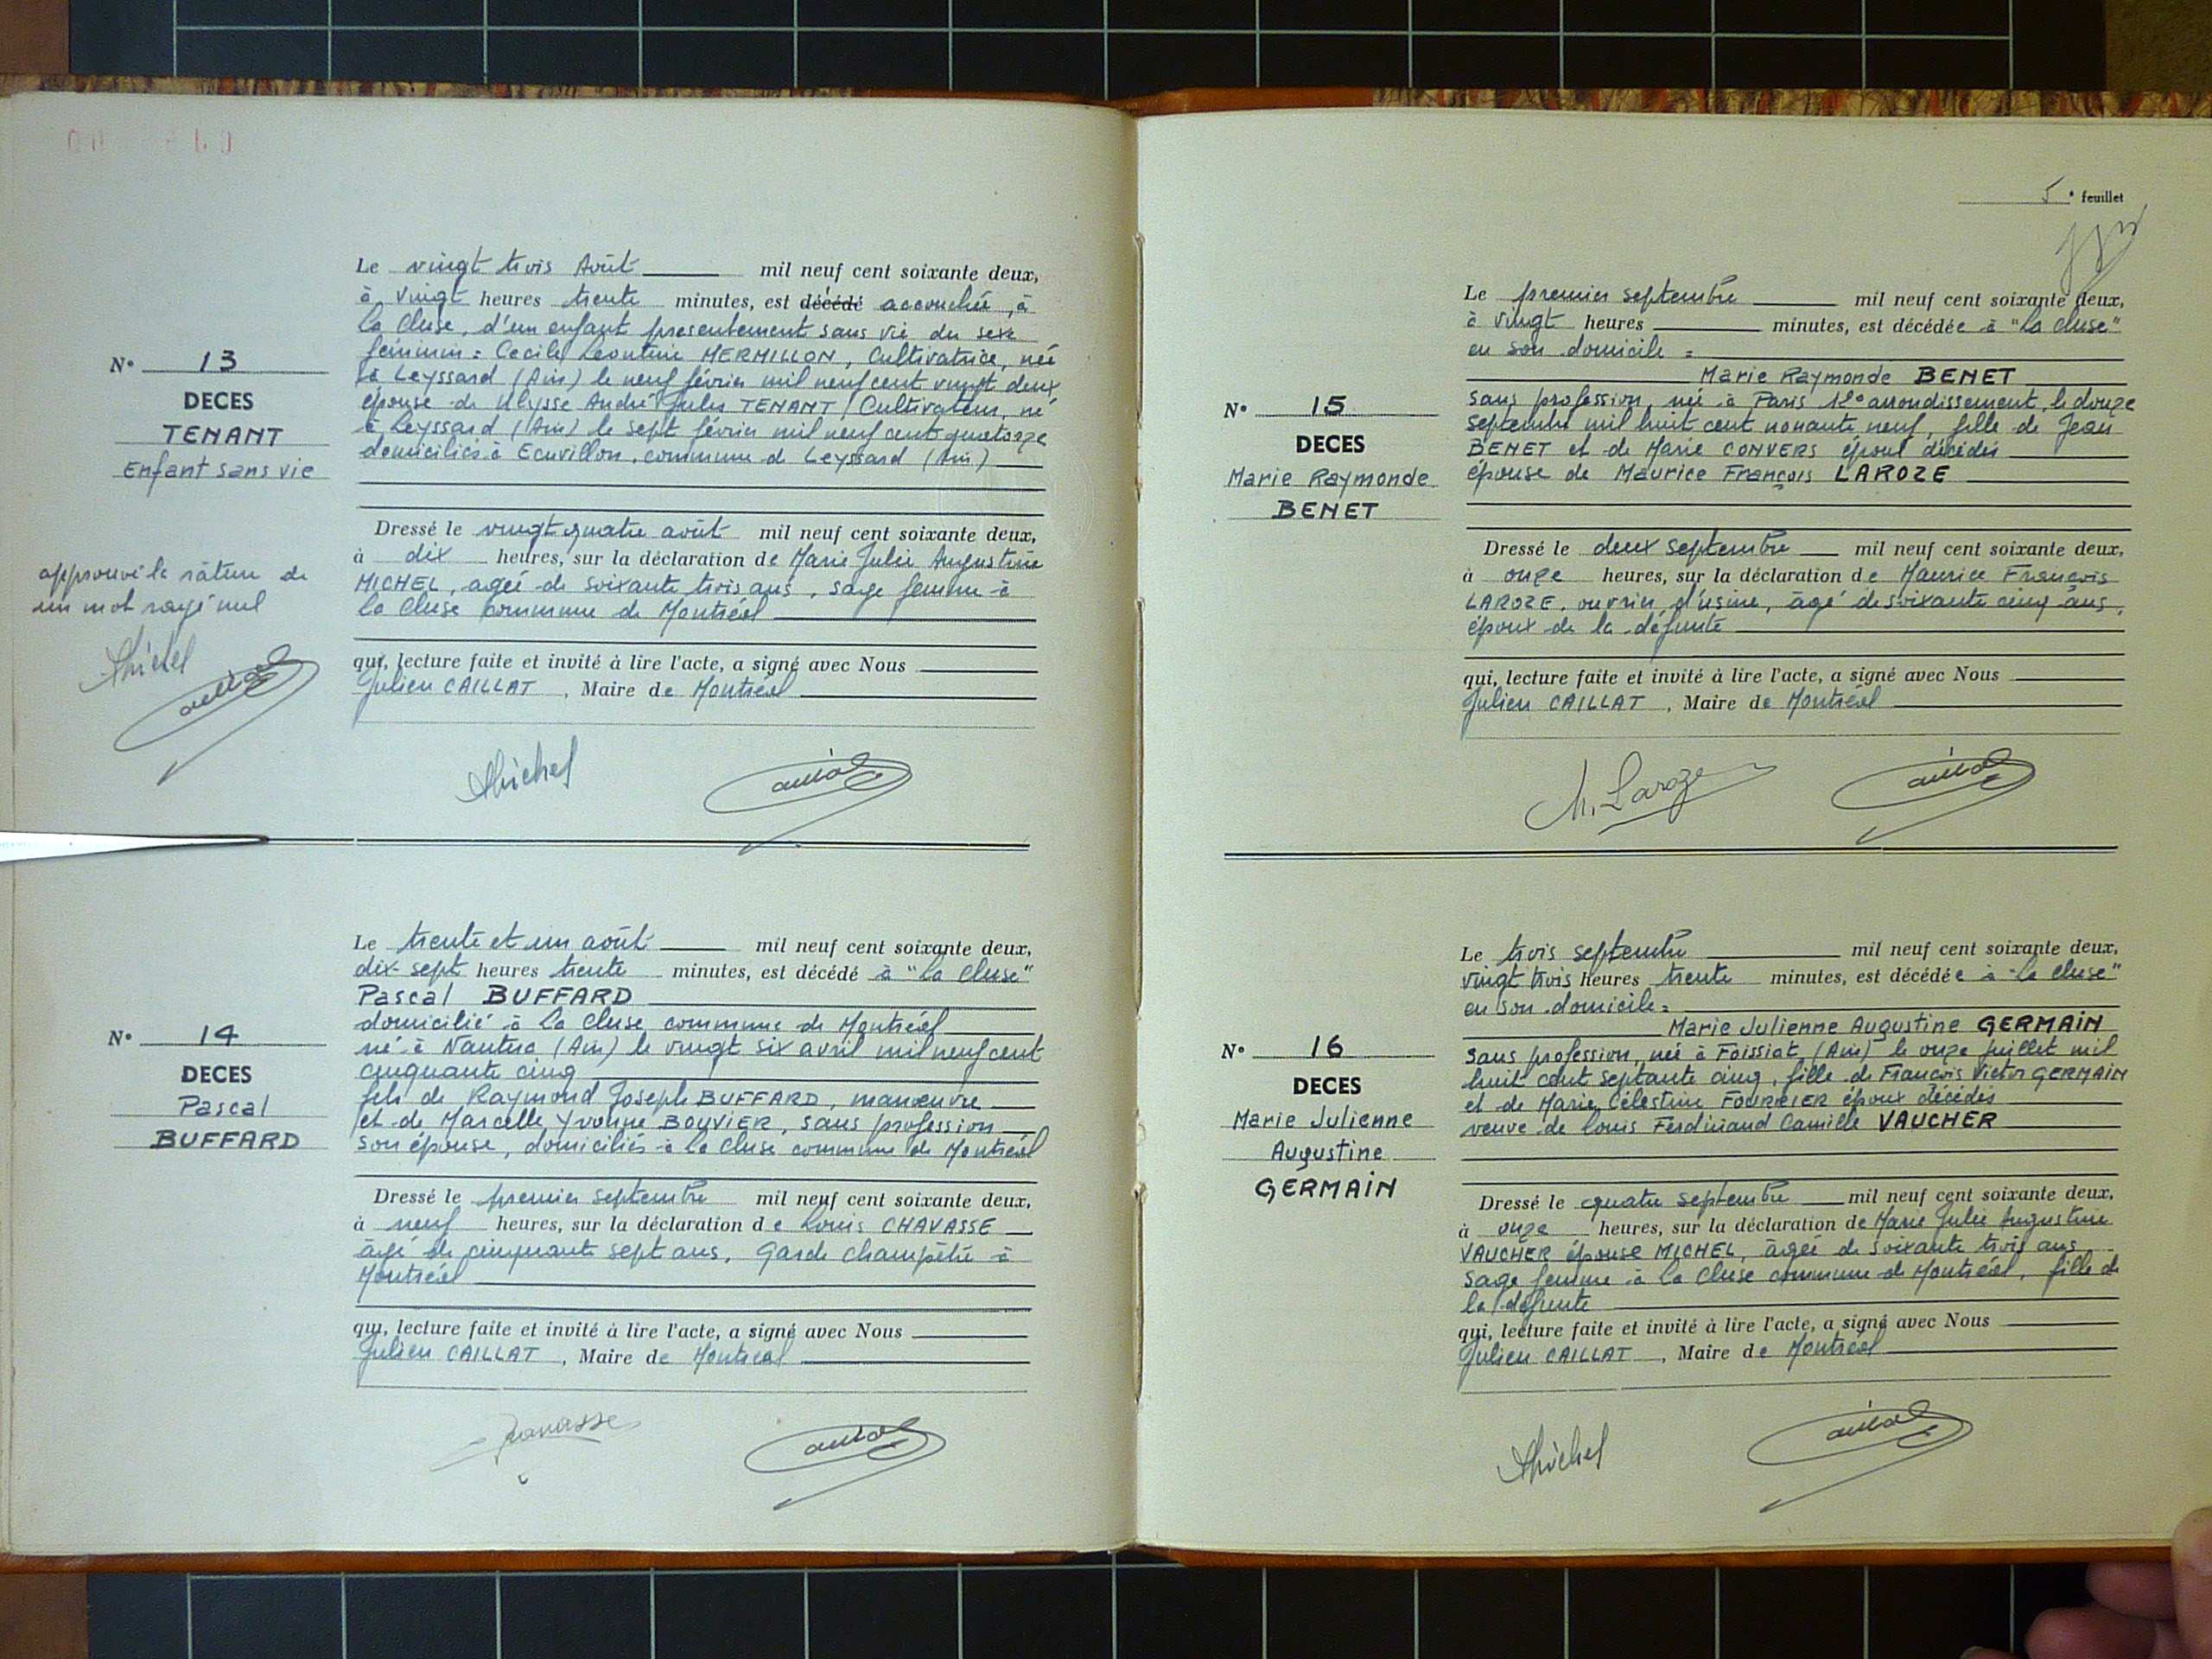 N° 13
DECES
TENANT
Enfant sans vie
approuvé la râture de
un mot rayé nul
Michel
Le vingt trois Août mil neuf cent soixante deux,
à vingt heures trente minutes, est décédé accouchée, à
La Cluse, d'un enfant presentement sans vie du sexe
féminin = Cecile Leontine MERMILLON, Cultivatrice, née
à Leyssard (Ain) le neuf février mil neuf cent vingt deux
épouse de Ulysse André Jules TENANT, Cultivateur, né
à Leyssard (Ain) le sept février mil neuf cent quatorze
domiciliés à Ecuvillon, commune de Leyssard (Ain)
Dressé le vingt quatre août mil neuf cent soixante deux,
à dix heures, sur la déclaration de Marie Julie Augustine
MICHEL, agée de soixante trois ans, sage femme à
La Cluse commune de Montréal
qui, lecture faite et invité à lire l'acte, a signé avec Nous
Julien CAILLAT, Maire de Montréal
Michel
N° 14
DECES
Pascal
BUFFARD
Le trente et un août mil neuf cent soixante deux,
dix-sept heures trente minutes, est décédé à "La Cluse"
Pascal BUFFARD
domicilié à La Cluse commune de Montréal
né à Nantua (Ain) le vingt six avril mil neuf cent
cinquante cinq
fils de Raymond Joseph BUFFARD, manœuvre
et de Marcelle Yvonne BOUVIER, sans profession
son épouse, domiciliés à La Cluse commune de Montréal
Dressé le premier septembre mil neuf cent soixante deux,
à neuf heures, sur la déclaration de Louis CHAVASSE
âgé de cinquante sept ans, Garde champêtre à
Montréal
qui, lecture faite et invité à lire l'acte, a signé avec Nous
Julien CAILLAT, Maire de Montréal
Chavasse
5e feuillet
N° 15
DECES
Marie Raymonde
BENET
Le premier septembre mil neuf cent soixante deux,
à vingt heures minutes, est décédée à "La Cluse"
en son domicile =
Marie Raymonde BENET
sans profession, née à Paris 12e arrondissement, le douze
septembre mil huit cent nonante neuf, fille de Jean
BENET et de Marie CONVERS époux décédés
épouse de Maurice François LAROZE
Dressé le deux septembre mil neuf cent soixante deux,
à onze heures, sur la déclaration de Maurice François
LAROZE, ouvrier d'usine, âgé de soixante cinq ans,
époux de la défunte
qui, lecture faite et invité à lire l'acte, a signé avec Nous
Julien CAILLAT, Maire de Montréal
M. Laroze
N° 16
DECES
Marie Julienne
Augustine
GERMAIN
Le trois septembre mil neuf cent soixante deux,
vingt trois heures trente minutes, est décédée à "La Cluse"
en son domicile =
Marie Julienne Augustine GERMAIN
sans profession, née à Foissiat (Ain) le onze juillet mil
huit cent septante cinq, fille de François Victor GERMAIN
et de Marie Célestine FOURRIER époux décédés
veuve de Louis Ferdinand Camille VAUCHER
Dressé le quatre septembre mil neuf cent soixante deux,
à onze heures, sur la déclaration de Marie Julie Augustine
VAUCHER épouse MICHEL, âgée de soixante trois ans
sage femme à La Cluse commune de Montréal, fille de
la défunte
qui, lecture faite et invité à lire l'acte, a signé avec Nous
Julien CAILLAT, Maire de Montréal
Michel